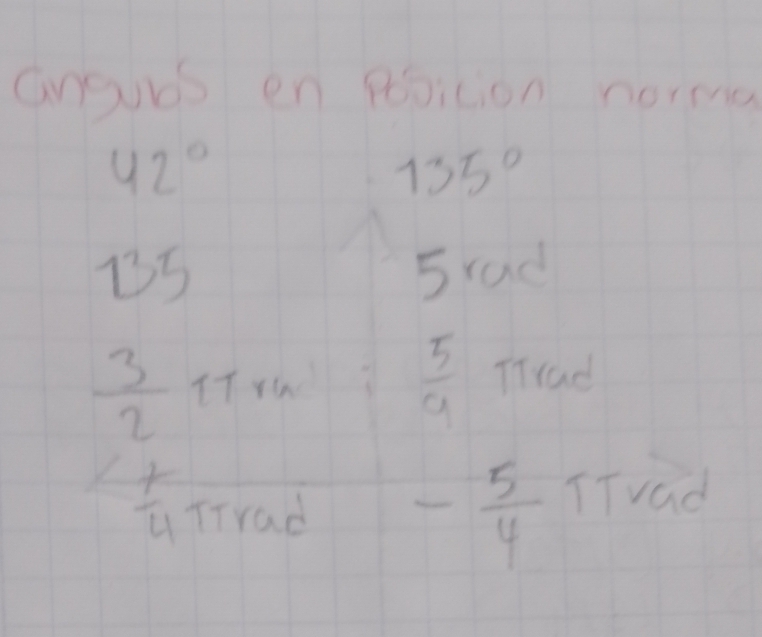 angulos en Posicion norma
42° 135°
135 5 rad
3/2 π ra 5/9 π rad
/4 π rad - 5/4 π rad